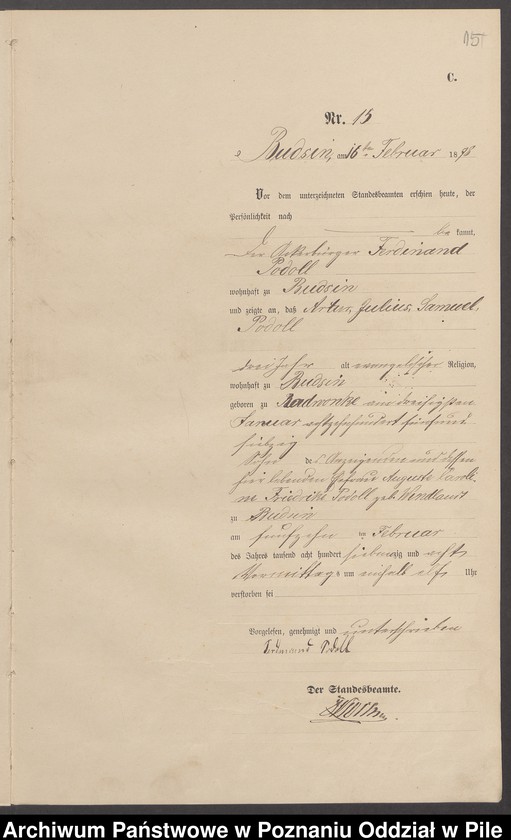 15
C.
Nr. 15
Budsin, am 16ten Februar 1878
Vor dem unterzeichneten Standesbeamten erschien heute, der
Persönlichkeit nach
be kannt,
Der Ackerbürger Ferdinand
Podoll
wohnhaft zu Budsin
und zeigte an, daß Artur, Julius, Samuel,
Podoll
drei Jahr alt, evangelischer Religion,
wohnhaft zu Budsin
geboren zu Radwonke ein dreißigsten
Januar achtzehnhundert fünfund
siebzig
Sohn des Anzeigenden und dessen
hier lebenden Ehefrau Auguste Caroli
ne Friedrike Podoll geb. Wendlandt
zu Budsin
am fünfzehn ten Februar
des Jahres tausend acht hundert siebenzig und acht
Vormittags um einhalb elf Uhr
verstorben sei
Vorgelesen, genehmigt und unterschrieben
Ferdinand Podoll
Der Standesbeamte.
Archiwum Państwowe w Poznaniu Oddział w Pile